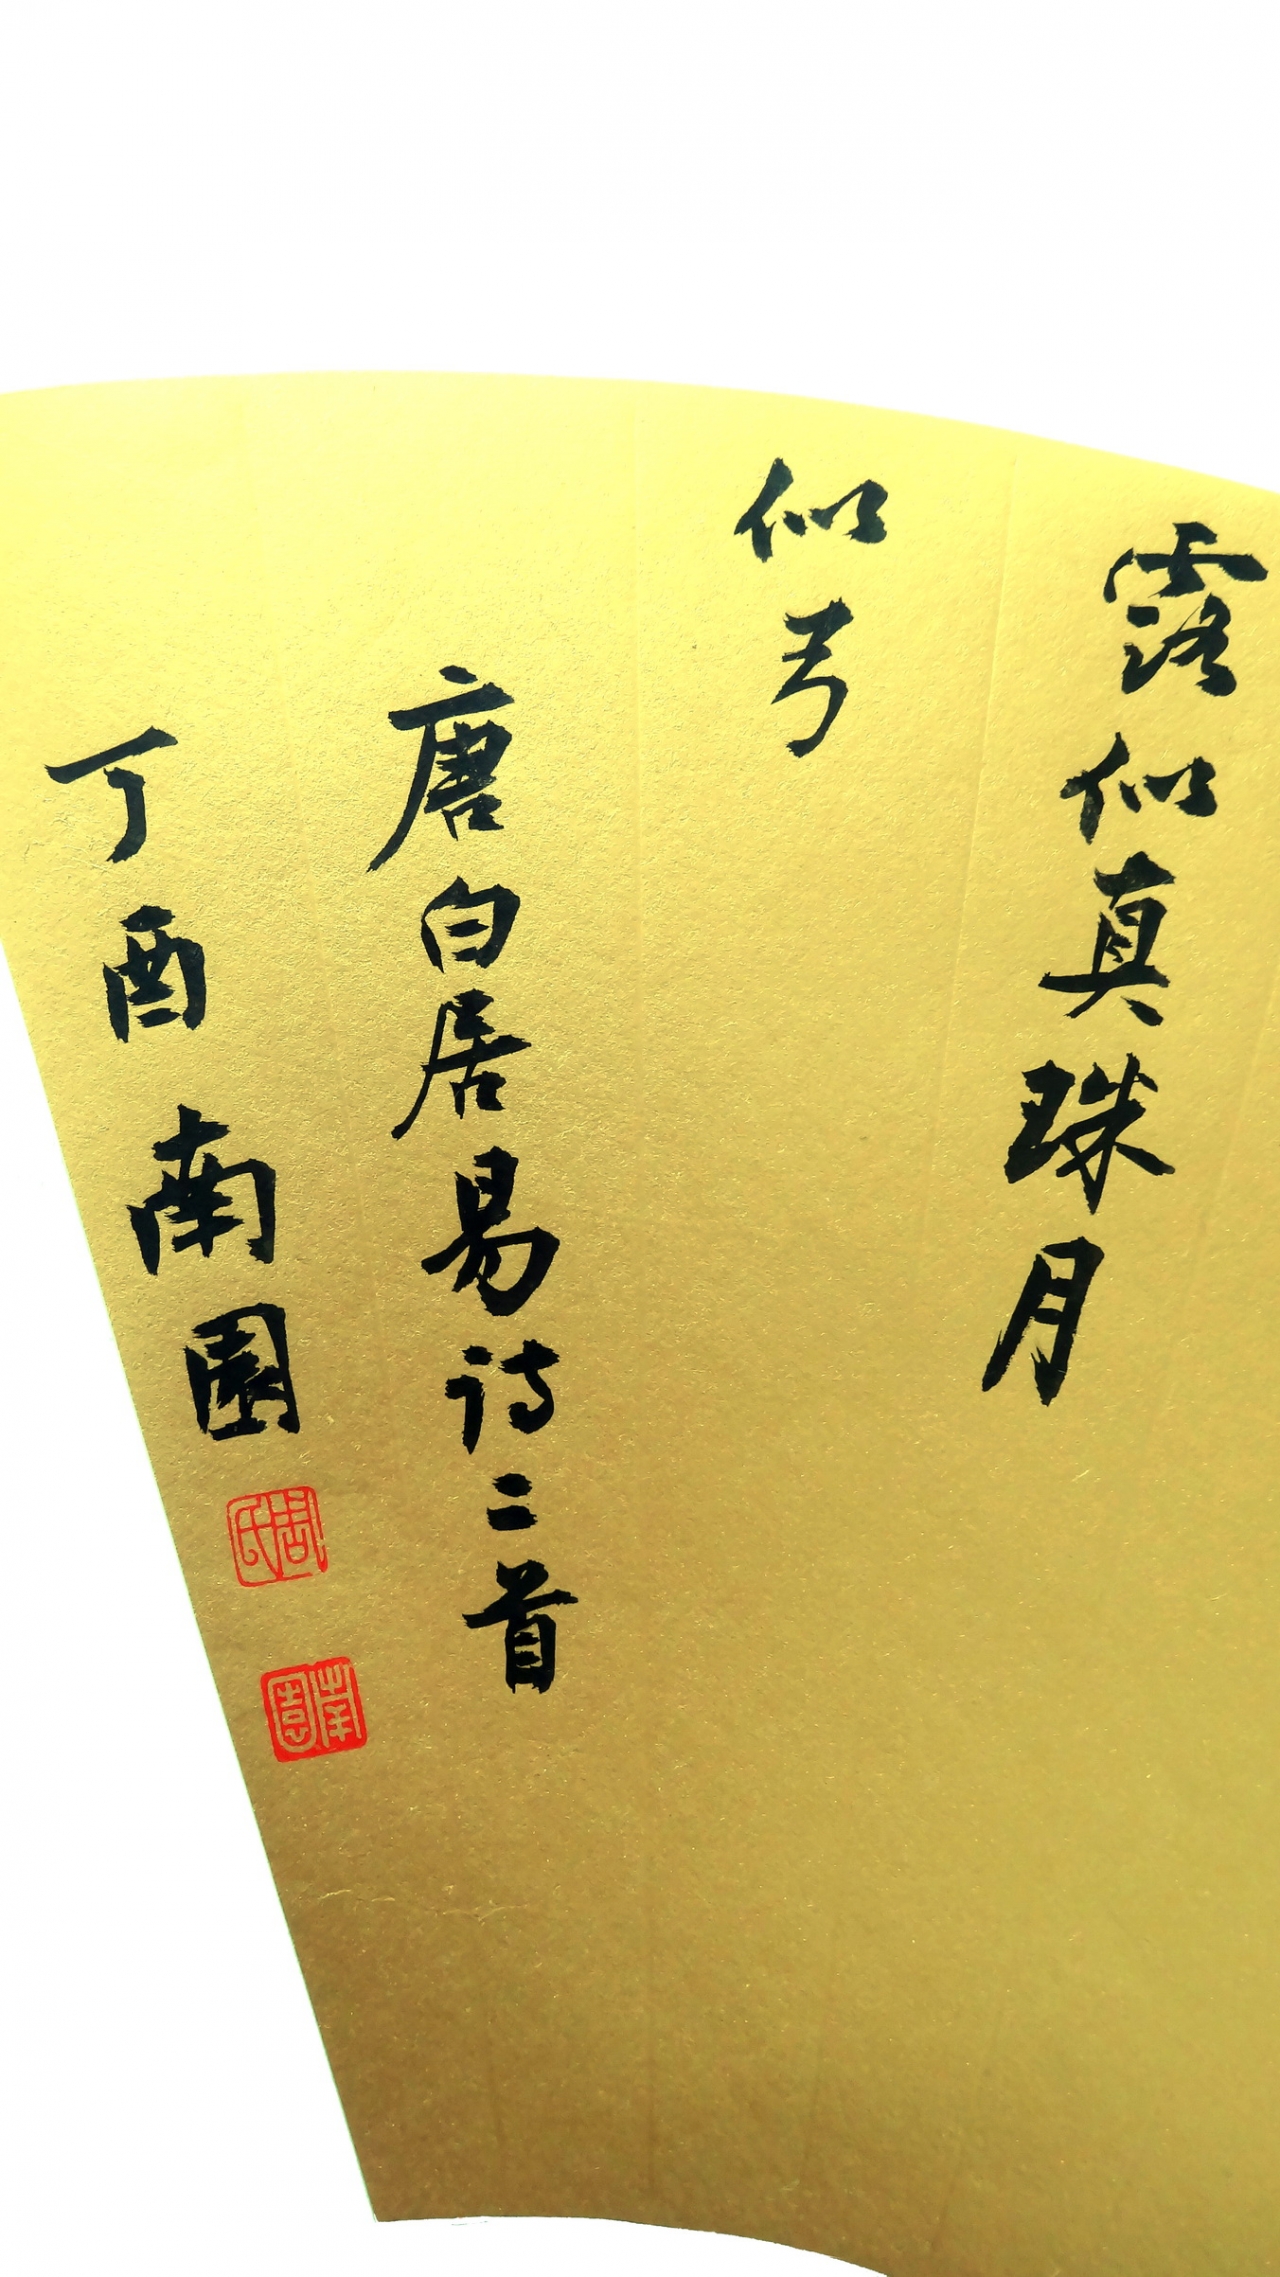 露似真珠月
似弓
唐白居易詩二首
丁酉 南園
周氏
南園